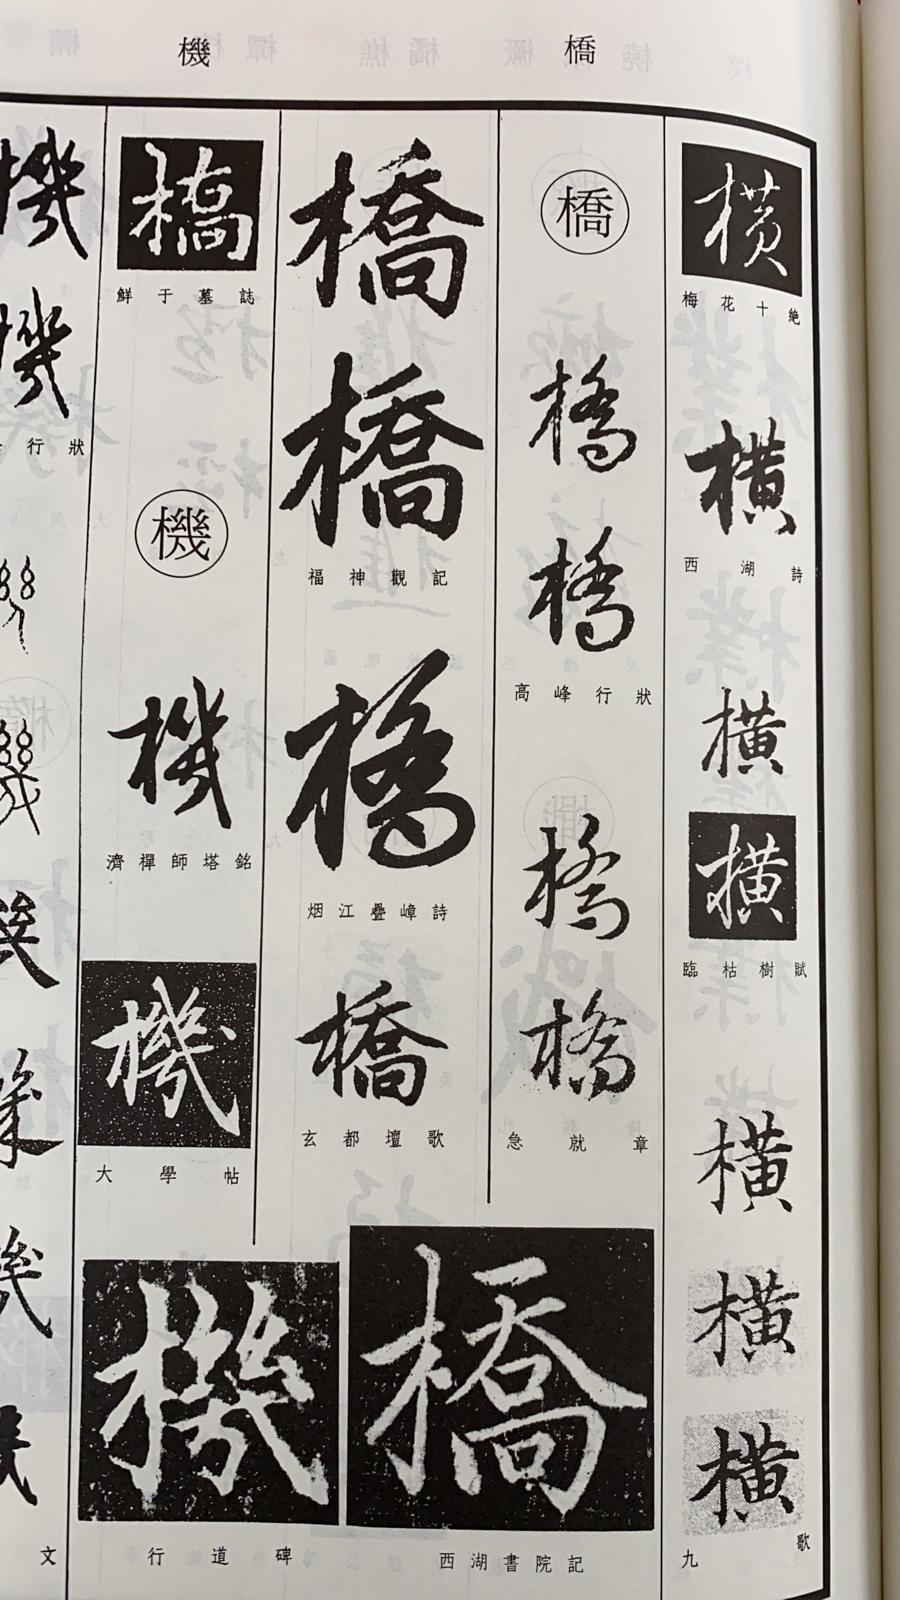 橋
機
横
梅花十絶
横
西湖詩
横
横
臨枯樹賦
横
横
横
九歌
橋
橋
橋
高峰行狀
橋
橋
急就章
橋
橋
福神觀記
橋
烟江疊嶂詩
橋
玄都壇歌
橋
西湖書院記
橋
鮮于墓誌
機
機
濟禪師塔銘
機
大學帖
機
行道碑
機
機
行狀
文